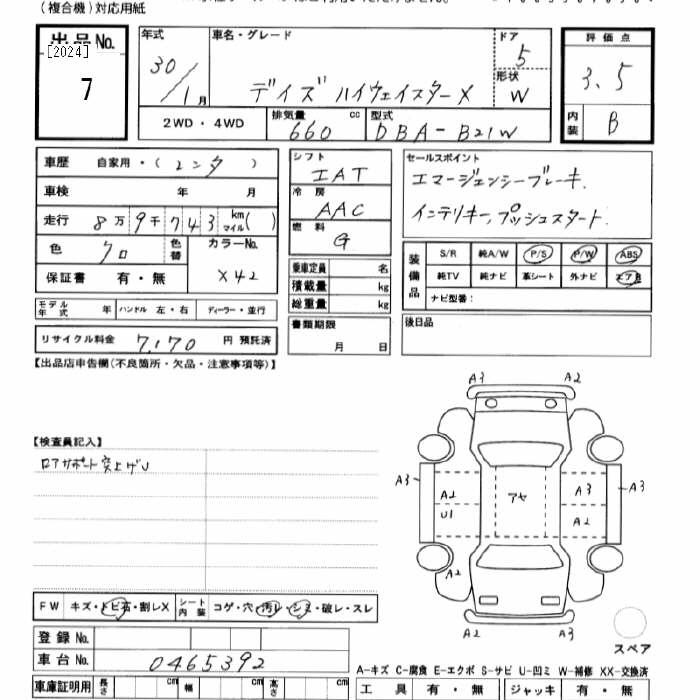 (複合機)対応用紙
出品No.
[2024]
7
年式
30/1月
車名・グレード
デイズ ハイウェイスターX
ドア
5
形状
W
評価点
3.5
内装
B
2WD・4WD
排気量
660 cc
型式
DBA-B21W
車歴 自家用・(レンタ)
車検 年 月
走行 8万9千743 km マイル( )
色 クロ
色替
カラーNo.
X42
保証書 有・無
モデル年式 年 ハンドル 左・右 ディーラー・並行
リサイクル料金 7,170 円 預託済
シフト
IAT
冷房
AAC
燃料
G
乗車定員 名
積載量 kg
総重量 kg
書類期限
月 日
セールスポイント
エマージェンシーブレーキ.
インテリキー,プッシュスタート.
装備品
S/R 純A/W P/S P/W ABS
純TV 純ナビ 革シート 外ナビ エアB
ナビ型番:
後日品
【出品店申告欄(不良箇所・欠品・注意事項等)】
【検査員記入】
ロアサポート突上ゲU
A3 A2
A3 A2 U1 アセ A3 A2 A3
A2
A2 A3
スペア
FW キズ・トビ石・割レX シート内装 コゲ・穴・汚レ・シミ・破レ・スレ
登録No.
車台No. 0465392
車庫証明用 長さ cm 幅 cm 高さ cm
A-キズ C-腐食 E-エクボ S-サビ U-凹ミ W-補修 XX-交換済
工具 有・無 ジャッキ 有・無